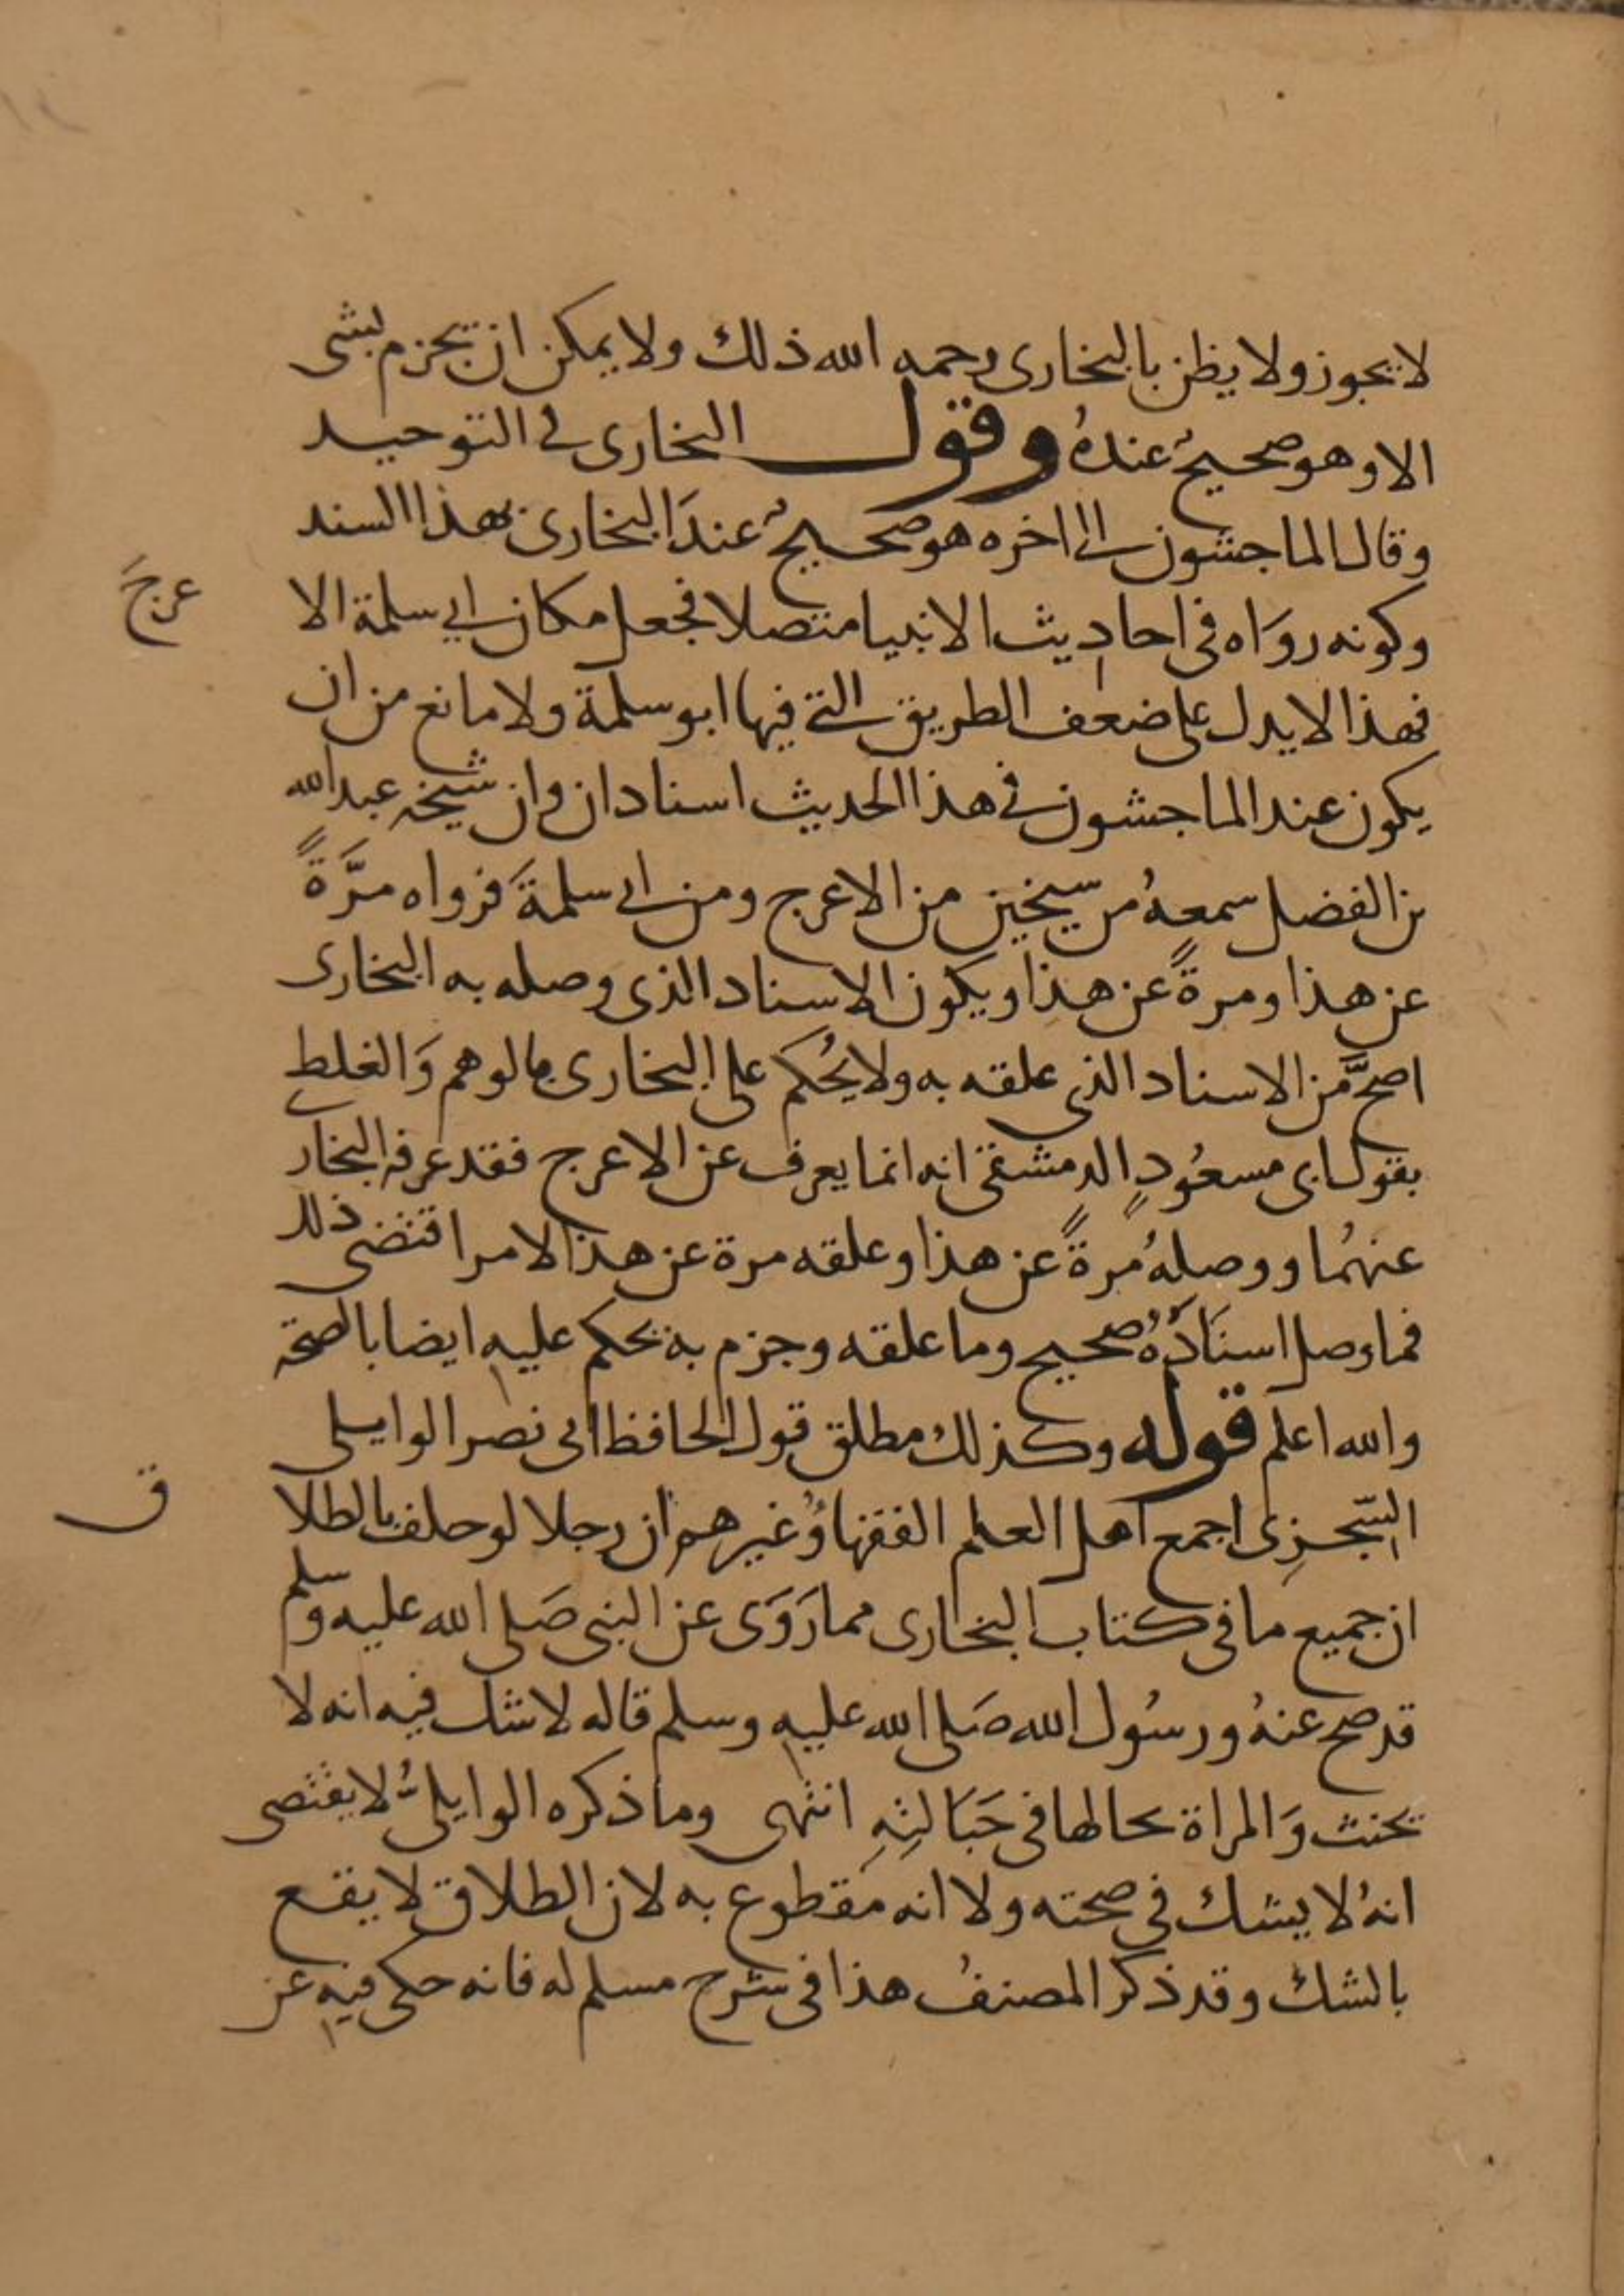 لا يجوز ولا يظن بالبخارى رحمه الله ذلك ولا يمكن ان يجزم بشى
الا وهو صحيحٌ عندهُ وقول البخارى فى التوحيد
وقال الماجشون الى اخره هو صحيحٌ عندَ البخارى بهذا السند
وكونه روَاه فى احاديث الانبيا متصلا فجعل مكان ابى سلمة الا
عرجَ
فهذا لا يدل على ضعف الطريق التى فيها ابو سلمة ولا مانع من ان
يكون عند الماجشون فى هذا الحديث اسنادان وان شيخه عبدالله
بن الفضل سمعهُ من شيخين من الاعرج ومن ابى سلمةَ فرواه مرَّةً
عن هذا ومرةً عن هذا ويكون الاسناد الذى وصله به البخارى
اصحَّ مَن الاسناد الذى علقه به ولا يُحكم على البخارى بالوهم وَالغلط
بقول ابى مسعُودٍ الدمشقى انه انما يعرف عن الاعرج فقد عرفه البخار
عنهُما ووصلهُ مُرةً عن هذا وعلقه مرة عن هذا لامر اقتضى ذلك
فما وصل اسنَادُهُ صحيح وما علقه وجزم به يحكم عليه ايضا بالصحة
والله اعلم قوله وكذلك مطلق قول الحافظ ابى نصر الوايلى
السّجزِى اجمع اهل العلم الفقهاُ وغيرهم ان رجلا لو حلف بالطلا
ق
ان جميع ما فى كتاب البخارى مما رَوَى عن النبى صَلى الله عليه وسلم
قد صح عنهُ ورسُول الله صَلى الله عليه وسلم قاله لا شك فيه انه لا
يحنث وَالمراة بحالها فى حَبَالتِهِ انتهى وما ذكره الوايلىُّ لا يقتضى
انهُ لا يشك فى صحته ولا انه مَقطوع به لان الطلاق لا يقع
بالشك وقد ذكر المصنفُ هذا فى شرح مسلم له فانه حكى فيه عن